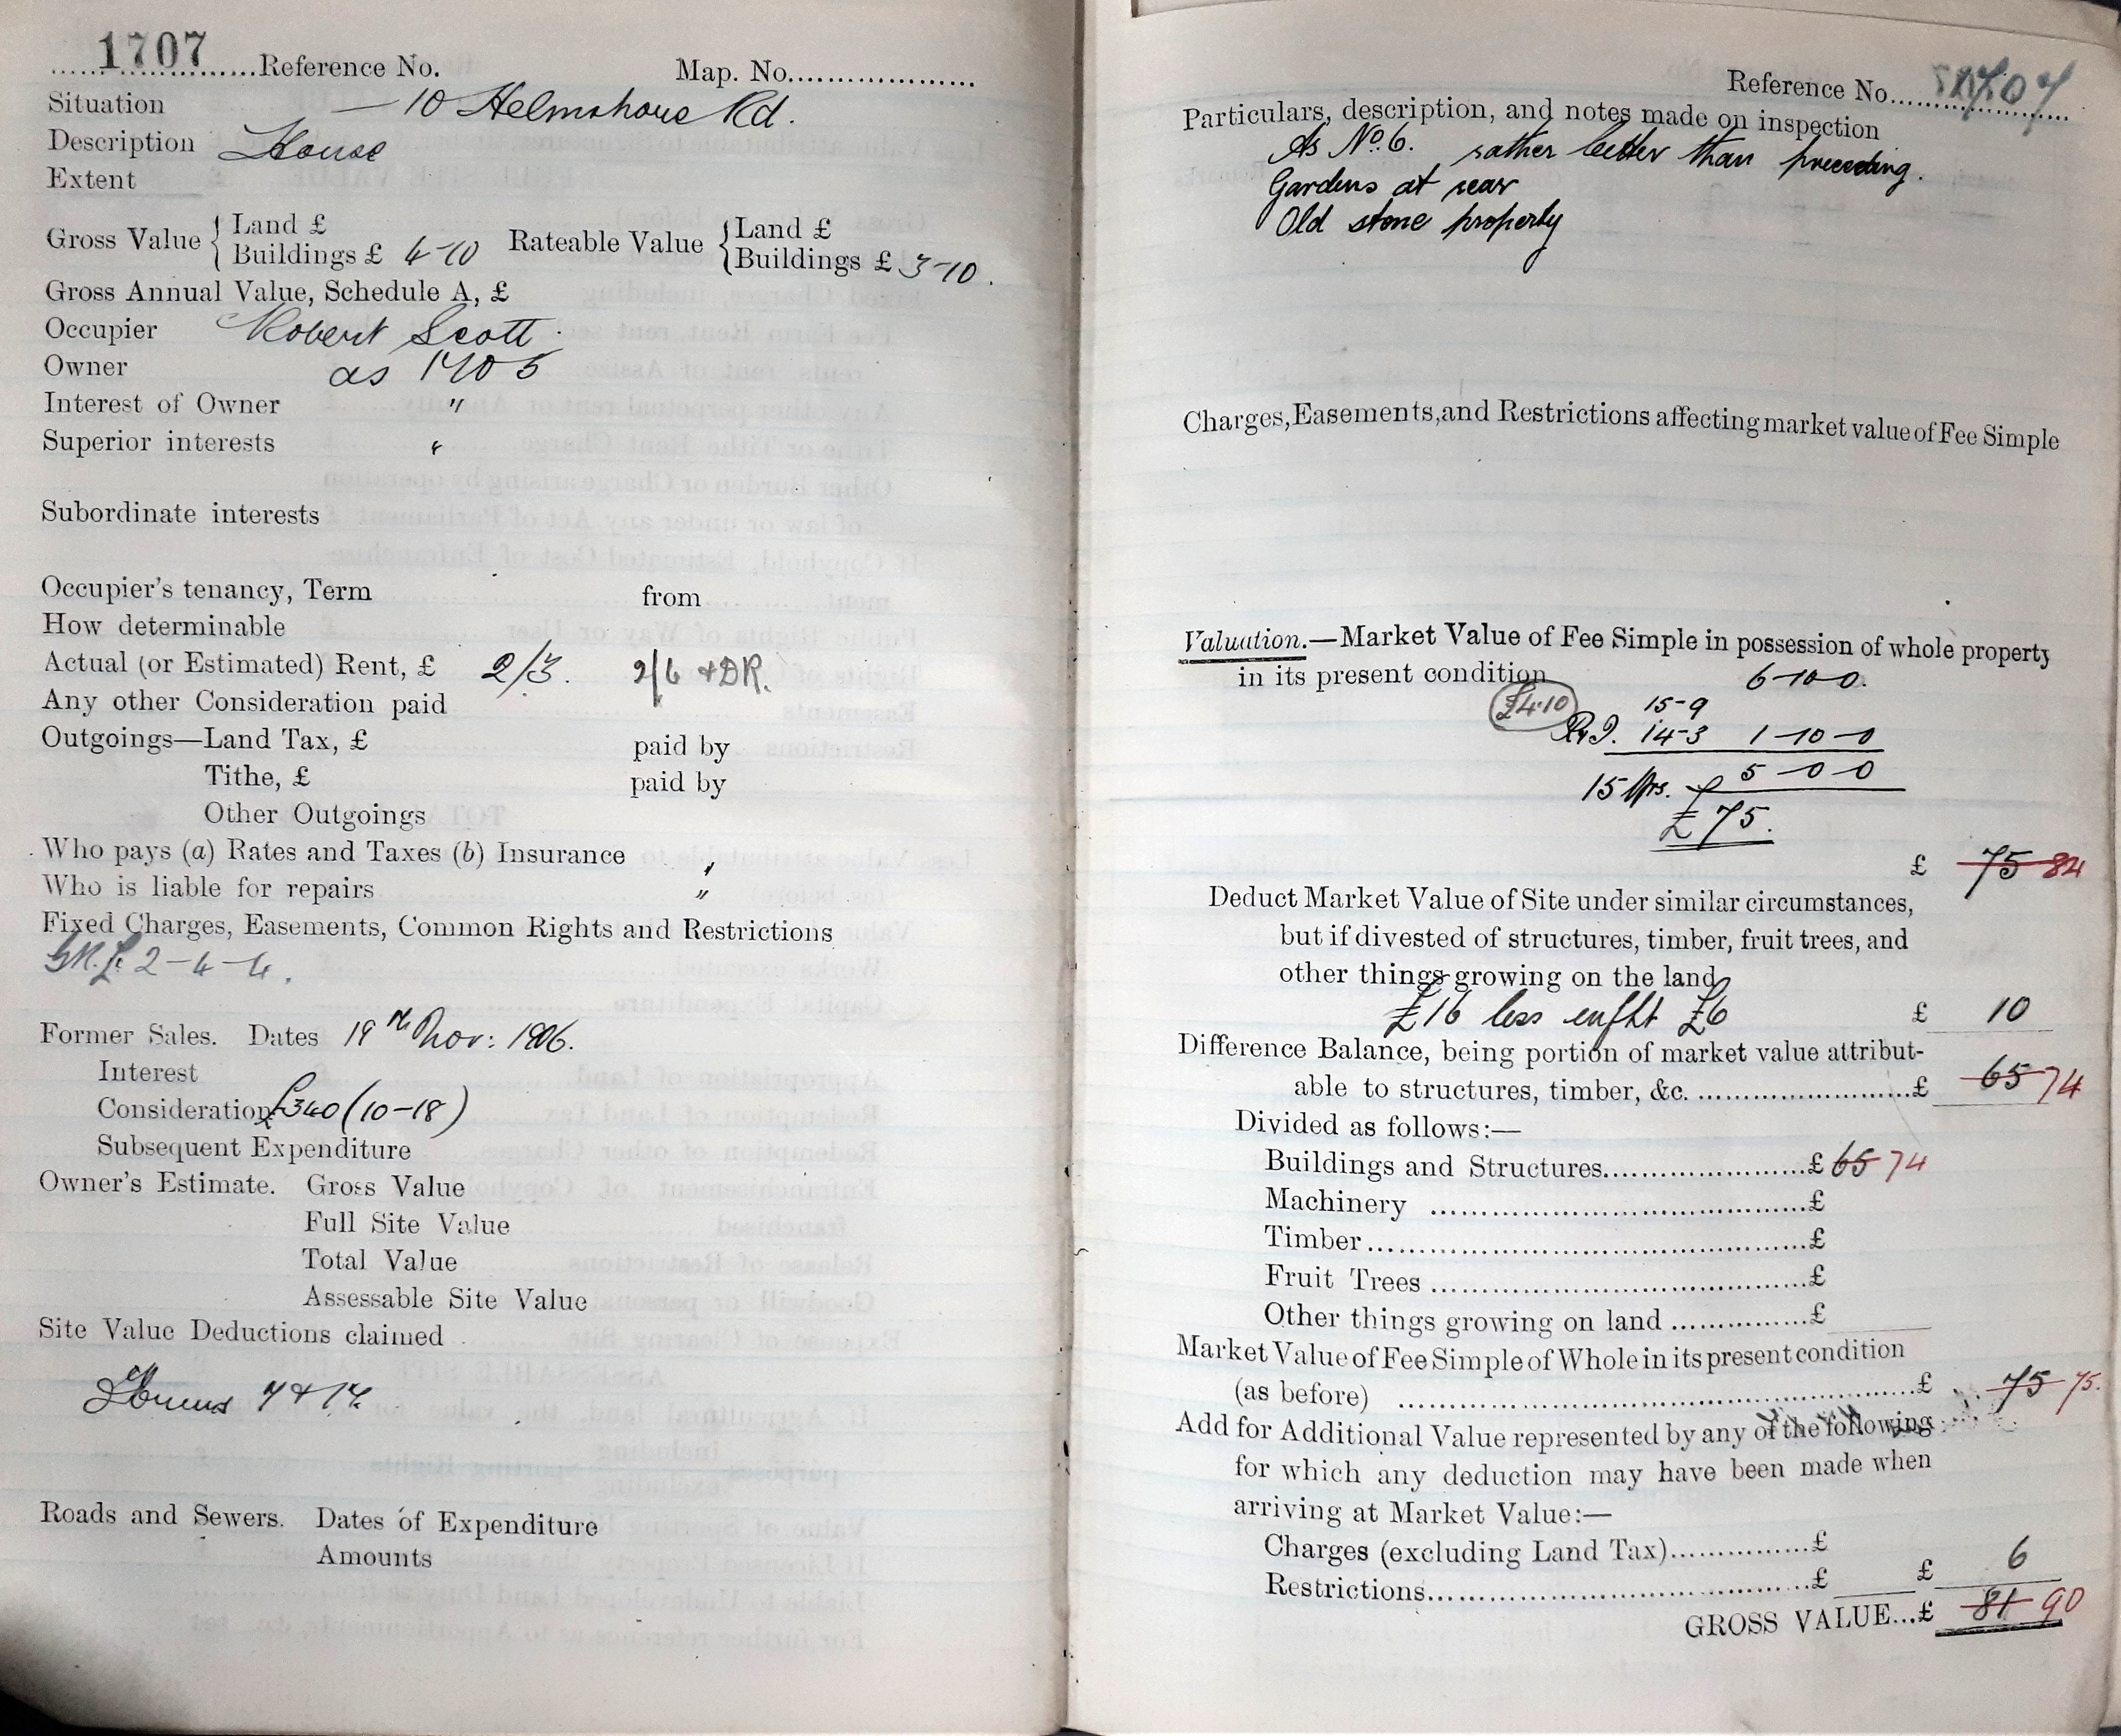 1707 Reference No. Map. No.
Situation — 10 Helmshore Rd.
Description House
Extent
Gross Value { Land £
Buildings £ 4-10 Rateable Value { Land £
Buildings £ 3-10.
Gross Annual Value, Schedule A, £
Occupier Robert Scott
Owner as 1705
Interest of Owner "
Superior interests "
Subordinate interests
Occupier's tenancy, Term from
How determinable
Actual (or Estimated) Rent, £ 2/3. 2/6 + DR.
Any other Consideration paid
Outgoings—Land Tax, £ paid by
Tithe, £ paid by
Other Outgoings
Who pays (a) Rates and Taxes (b) Insurance "
Who is liable for repairs "
Fixed Charges, Easements, Common Rights and Restrictions
GR. £ 2-4-4.
Former Sales. Dates 19th Nov: 1906.
Interest
Consideration £340 (10-18)
Subsequent Expenditure
Owner's Estimate. Gross Value
Full Site Value
Total Value
Assessable Site Value
Site Value Deductions claimed
7 & 14
Roads and Sewers. Dates of Expenditure
Amounts
Reference No. 1707
Particulars, description, and notes made on inspection
As No. 6. rather better than preceding.
Gardens at rear
Old stone property
Charges, Easements, and Restrictions affecting market value of Fee Simple
Valuation.—Market Value of Fee Simple in possession of whole property
in its present condition
6-10-0.
£4.10 15-9
14-3 1-10-0
5-0-0
15 Yrs.
£75.
£ 75 84
Deduct Market Value of Site under similar circumstances,
but if divested of structures, timber, fruit trees, and
other things growing on the land
£16 less £6 £ 10
Difference Balance, being portion of market value attribut-
able to structures, timber, &c. £ 65 74
Divided as follows:—
Buildings and Structures £ 65 74
Machinery £
Timber £
Fruit Trees £
Other things growing on land £
Market Value of Fee Simple of Whole in its present condition
(as before) £ 75 75.
Add for Additional Value represented by any of the following
for which any deduction may have been made when
arriving at Market Value:—
Charges (excluding Land Tax) £
Restrictions £ £ 6
GROSS VALUE...£ 81 90